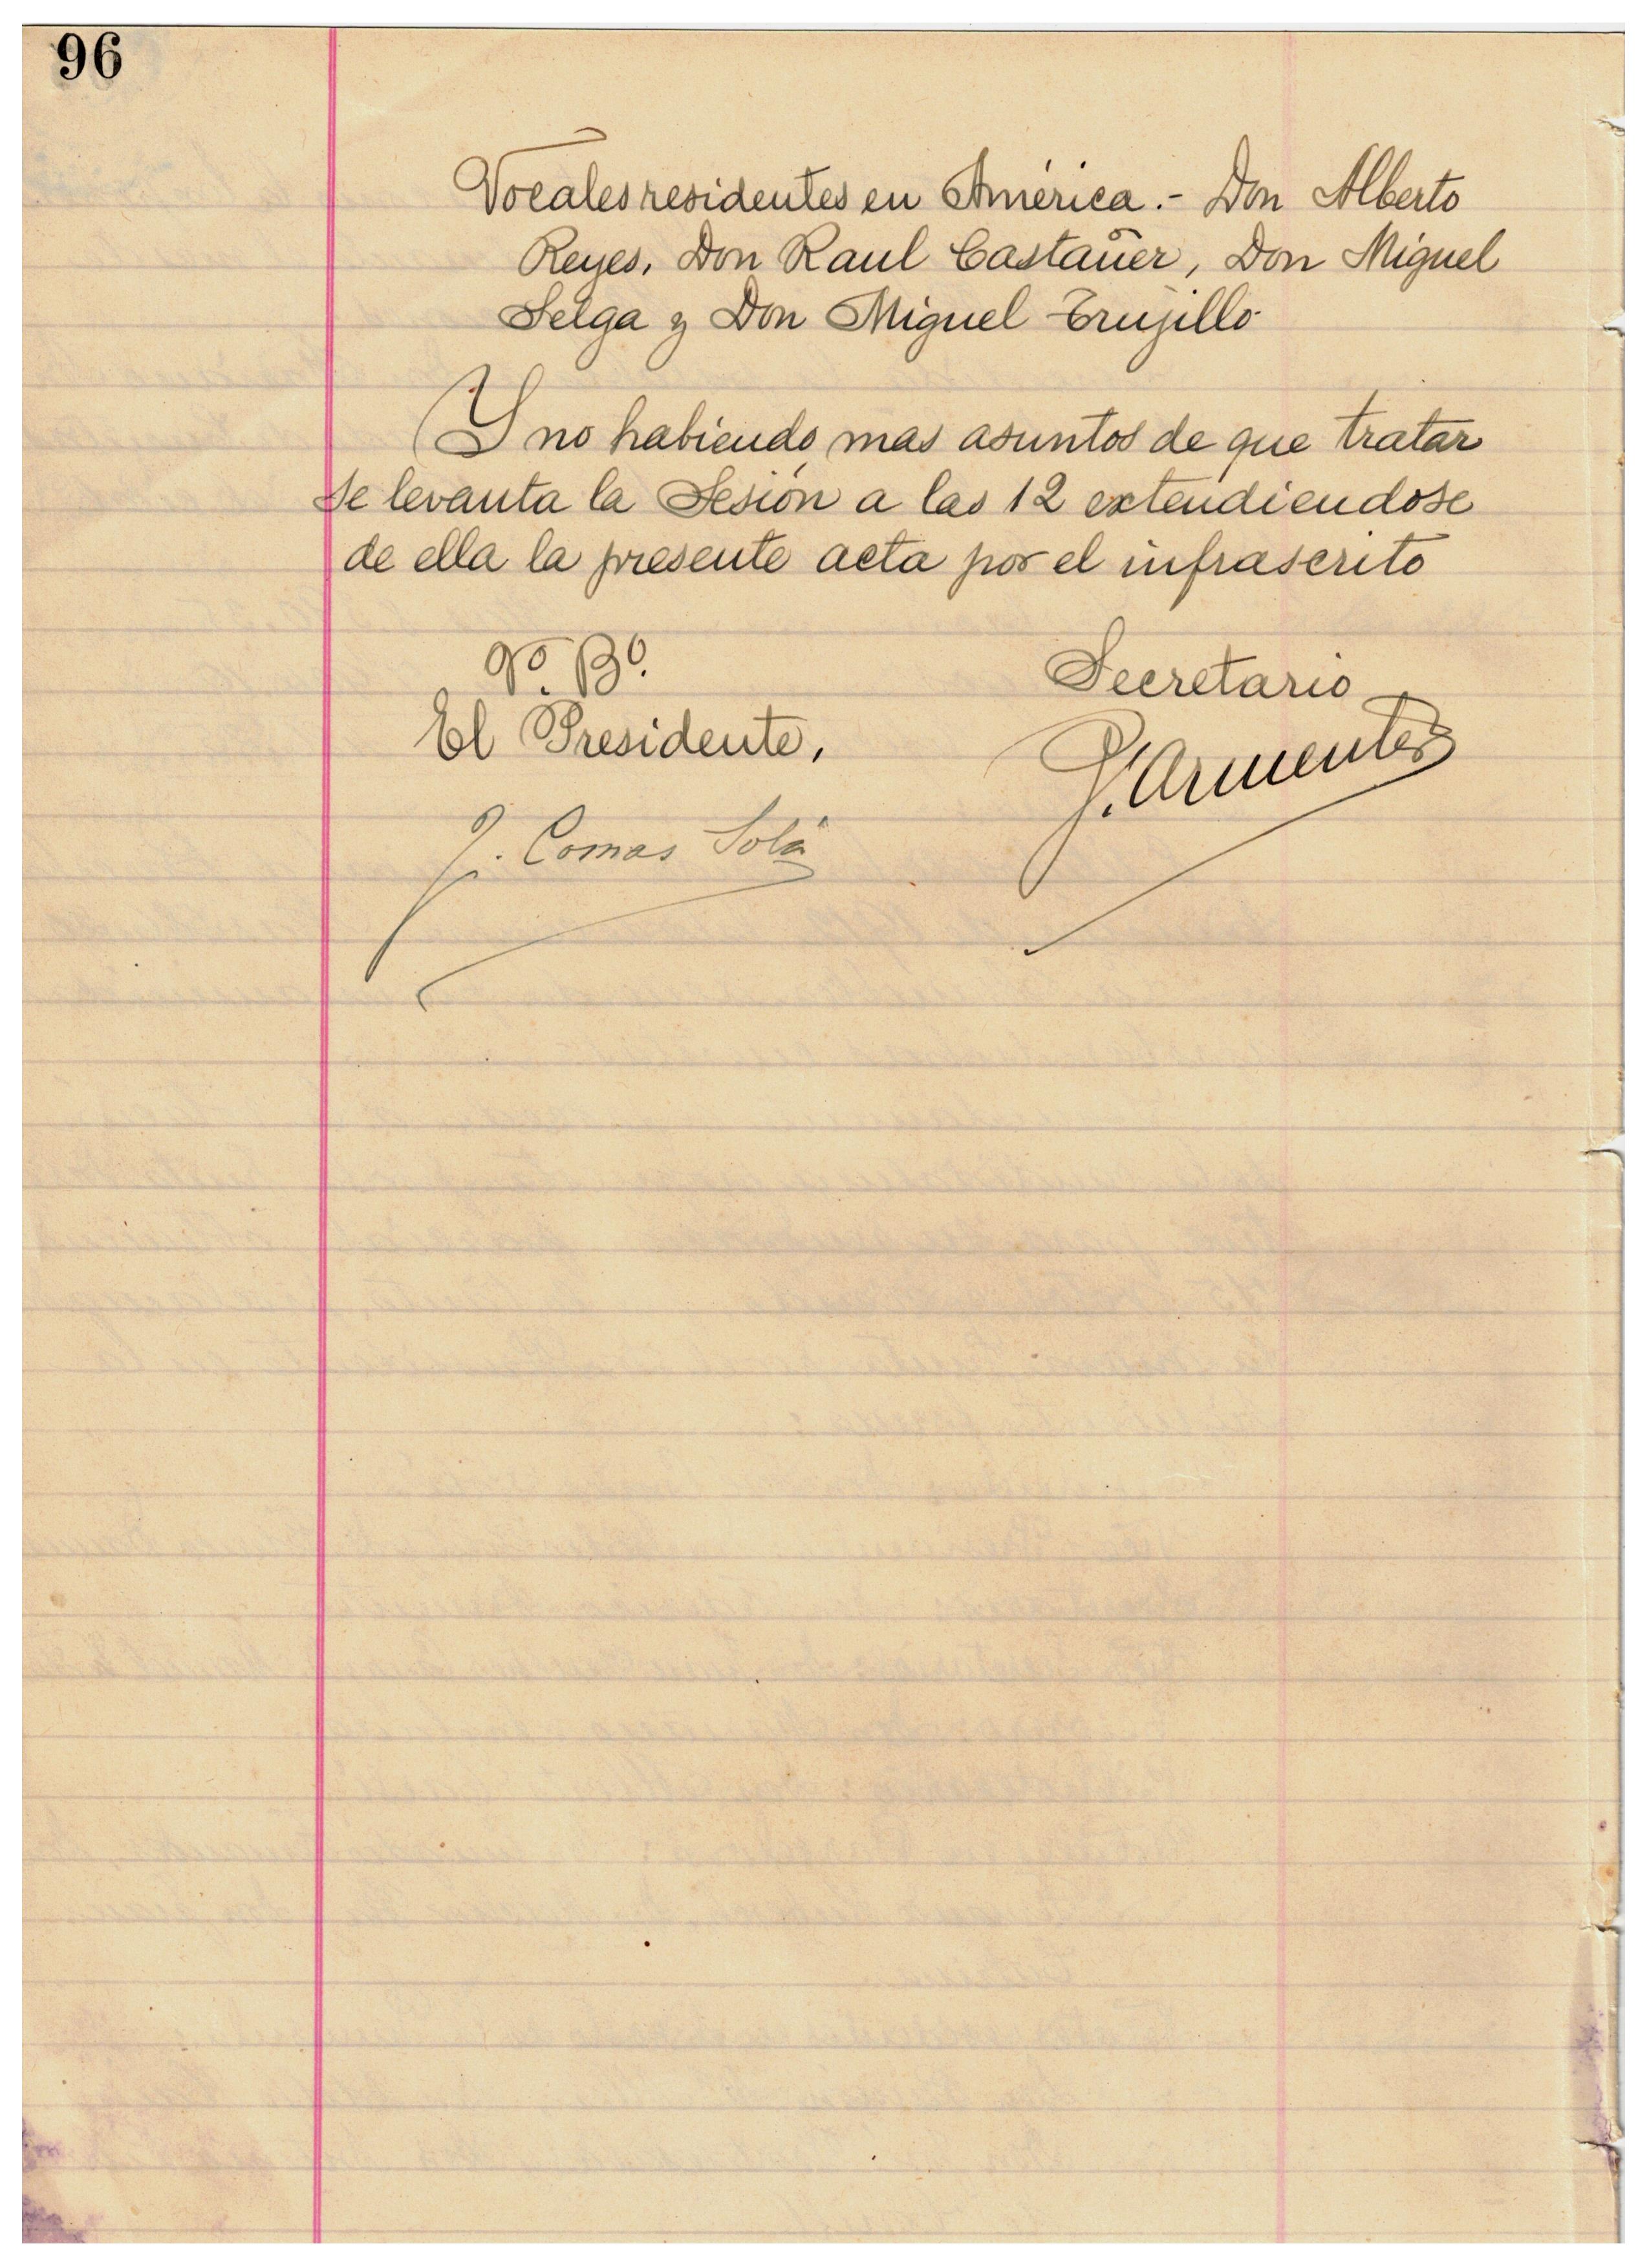 96
Vocales residentes en América.- Don Alberto
Reyes, Don Raul Castañer, Don Miguel
Selga y Don Miguel Trujillo.
Y no habiendo mas asuntos de que tratar
se levanta la Sesión a las 12 extendiendose
de ella la presente acta por el infrascrito
Vº. Bº.
Secretario
El Presidente,
P. Armenter
J. Comas Solá